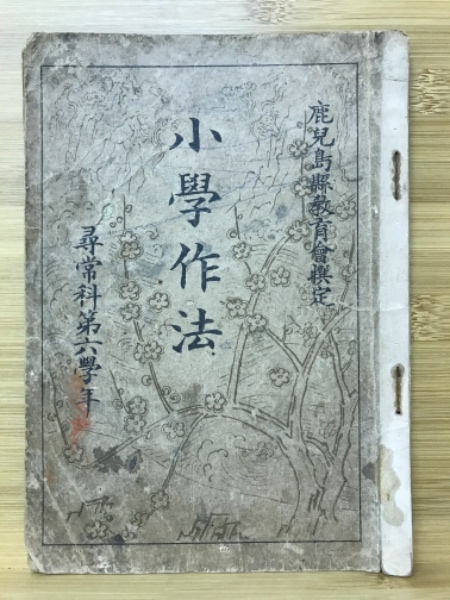 鹿兒島縣敎育會撰定
小學作法
尋常科第六學年